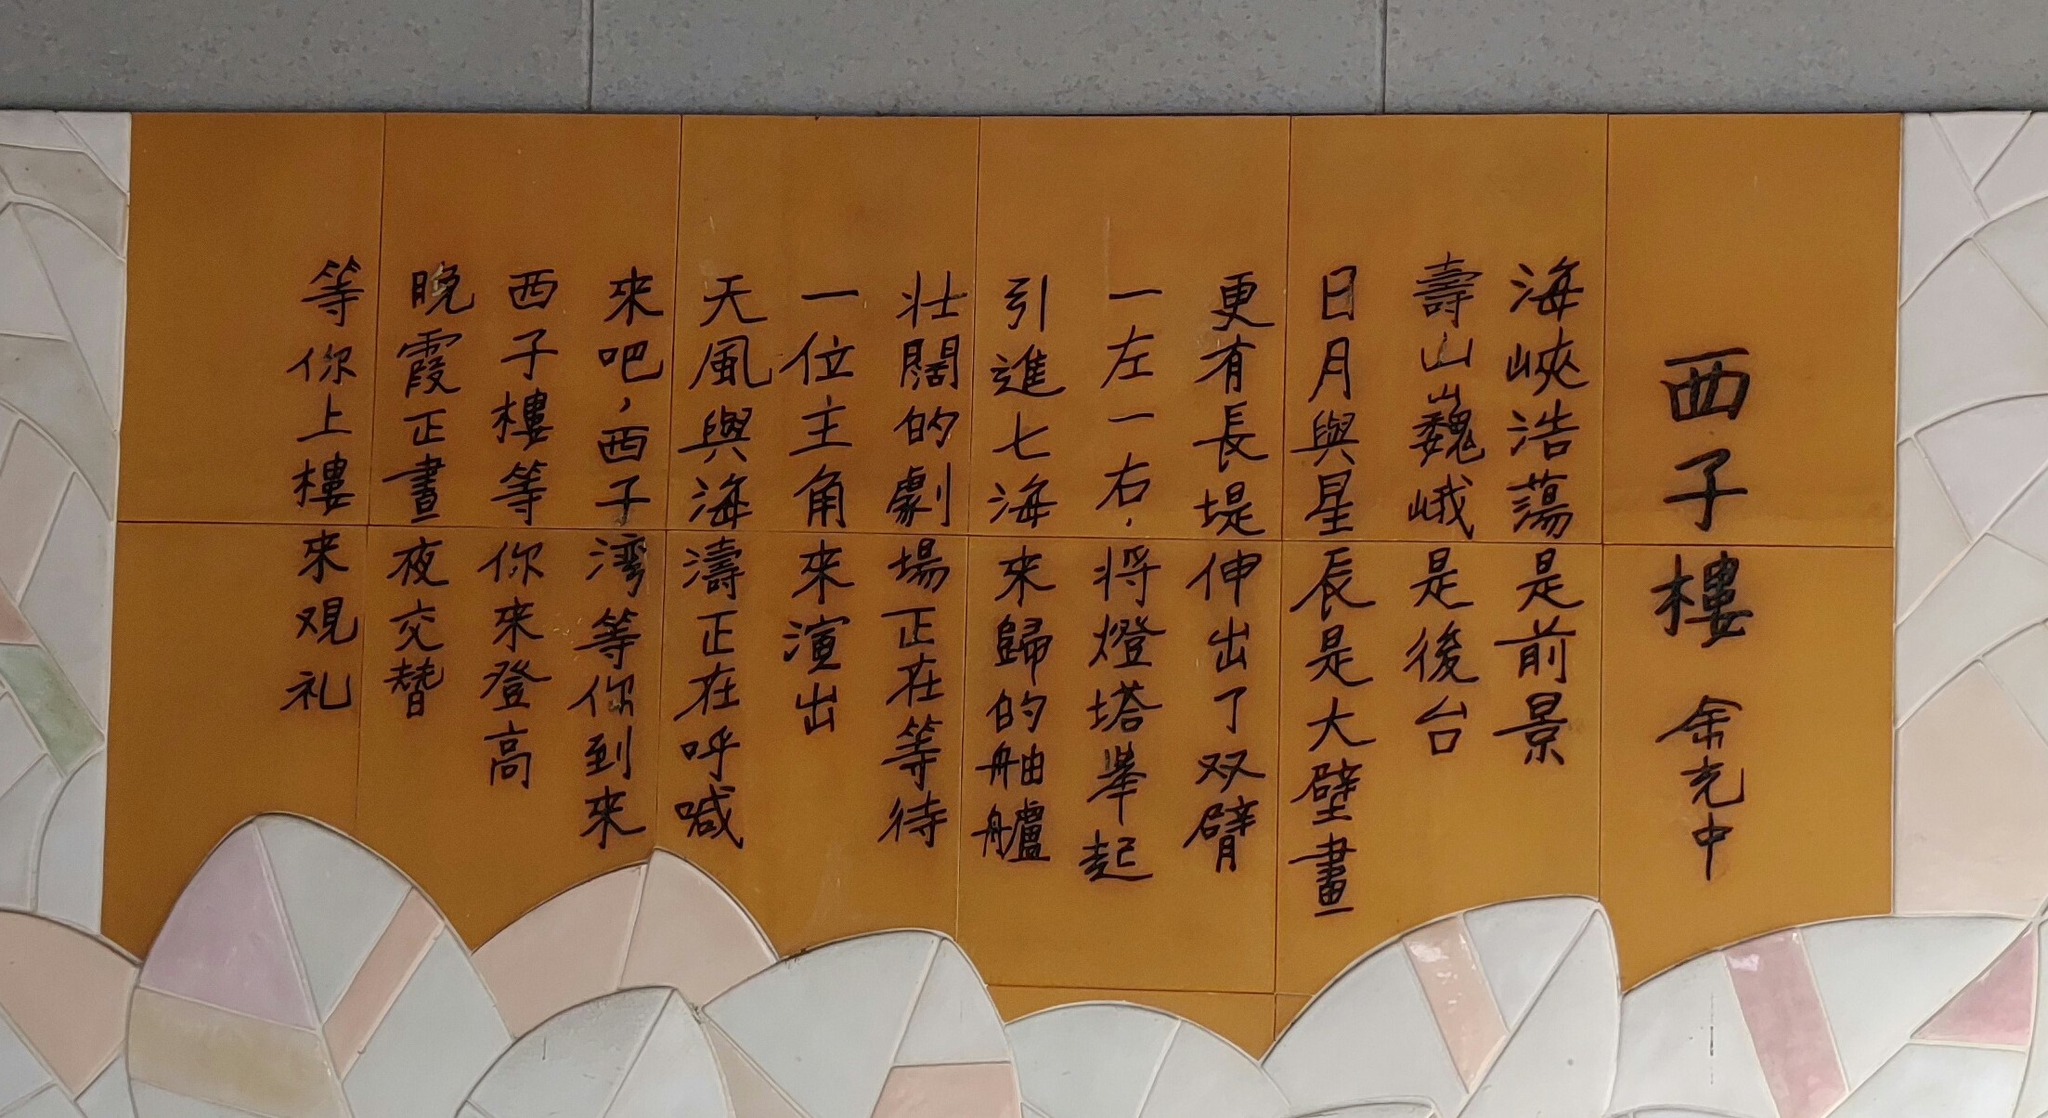 西子樓 余光中
海峽浩蕩是前景
壽山巍峨是後台
日月與星辰是大壁畫
更有長堤伸出了双臂
一左一右，将燈塔舉起
引進七海來歸的舳艫
壮闊的劇場正在等待
一位主角來演出
天風與海濤正在呼喊
來吧，西子湾等你到來
西子樓等你來登高
晚霞正晝夜交替
等你上樓來观礼